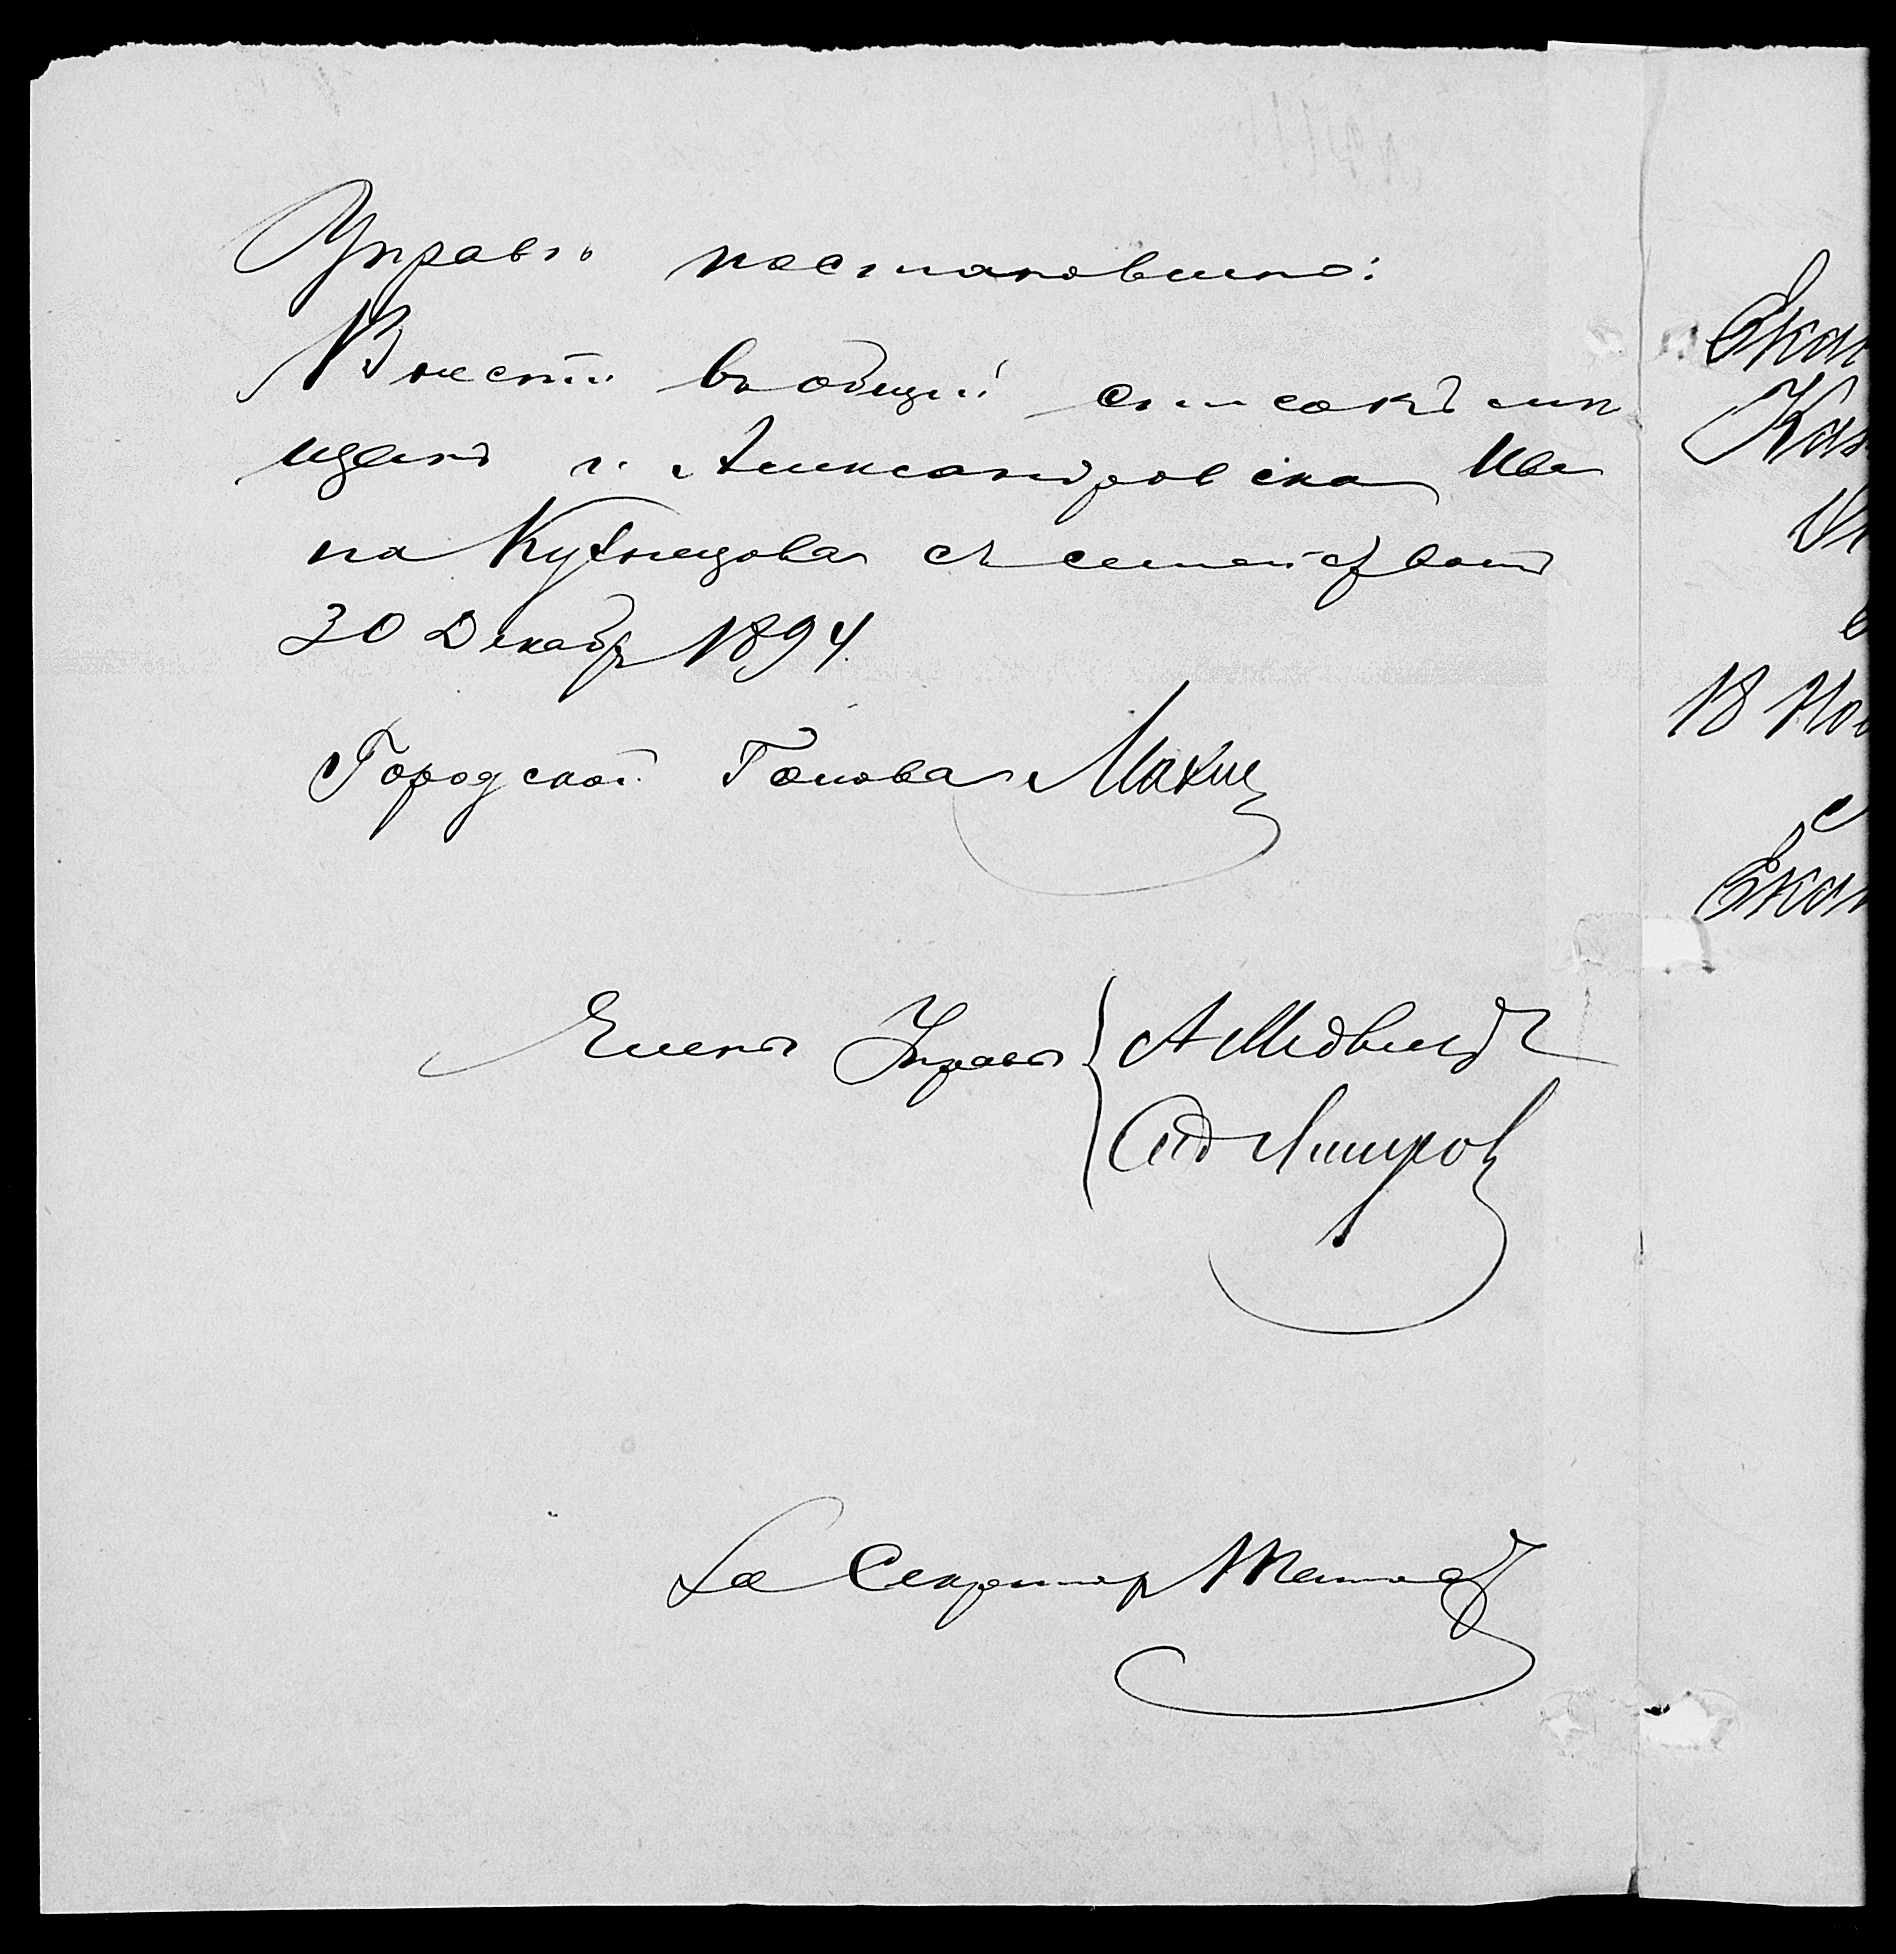 Управа постановила:
Внести въ общий список мѣ
щанъ г. Александровска Ива
на Кузнецова съ семействомъ
30 Декабр 1894.
Городской Голова Махно
Члены Управы { А Медвидъ
За Секретар
Ека
Ка
18 Ноя
Ека